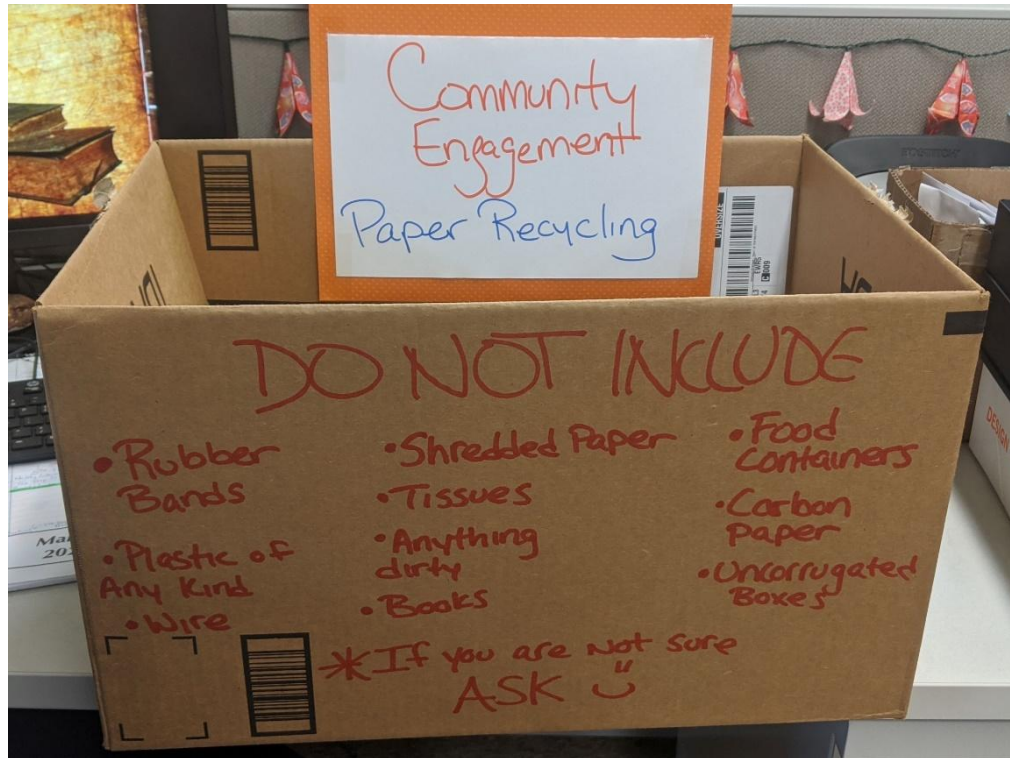 Community
Engagement
Paper Recycling
DO NOT INCLUDE
• Rubber
Bands
• Plastic of
Any Kind
• Wire
• Shredded Paper
• Tissues
• Anything
dirty
• Books
• Food
Containers
• Carbon
Paper
• Uncorrugated
Boxes
* If you are not sure
ASK
OVERSIZE
DESIGN